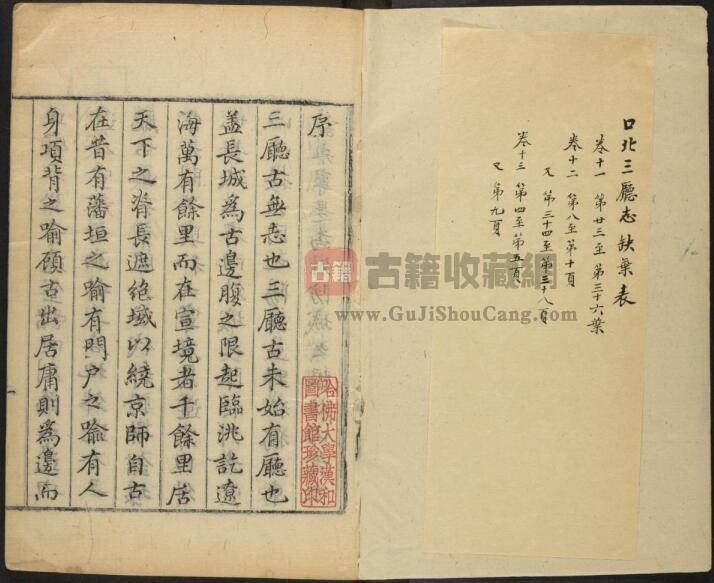 口北三廳志缺葉表
卷十一 第廿三至第三十六葉
卷十二 第八至第十頁
又 第三十四至第三十八頁
卷十三 第四至第五頁
又 第九頁
序
三廳古無志也三廳古未始有廳也
蓋長城為古邊腹之限起臨洮訖遼
海萬有餘里而在宣境者千餘里居
天下之脊長遮絕域以繞京師自古
在昔有藩垣之喻有門户之喻有人
身項背之喻顧古出居庸則為邊而
哈佛大學漢和
圖書館珍藏印
古籍
古籍收藏網
www.GuJiShouCang.com